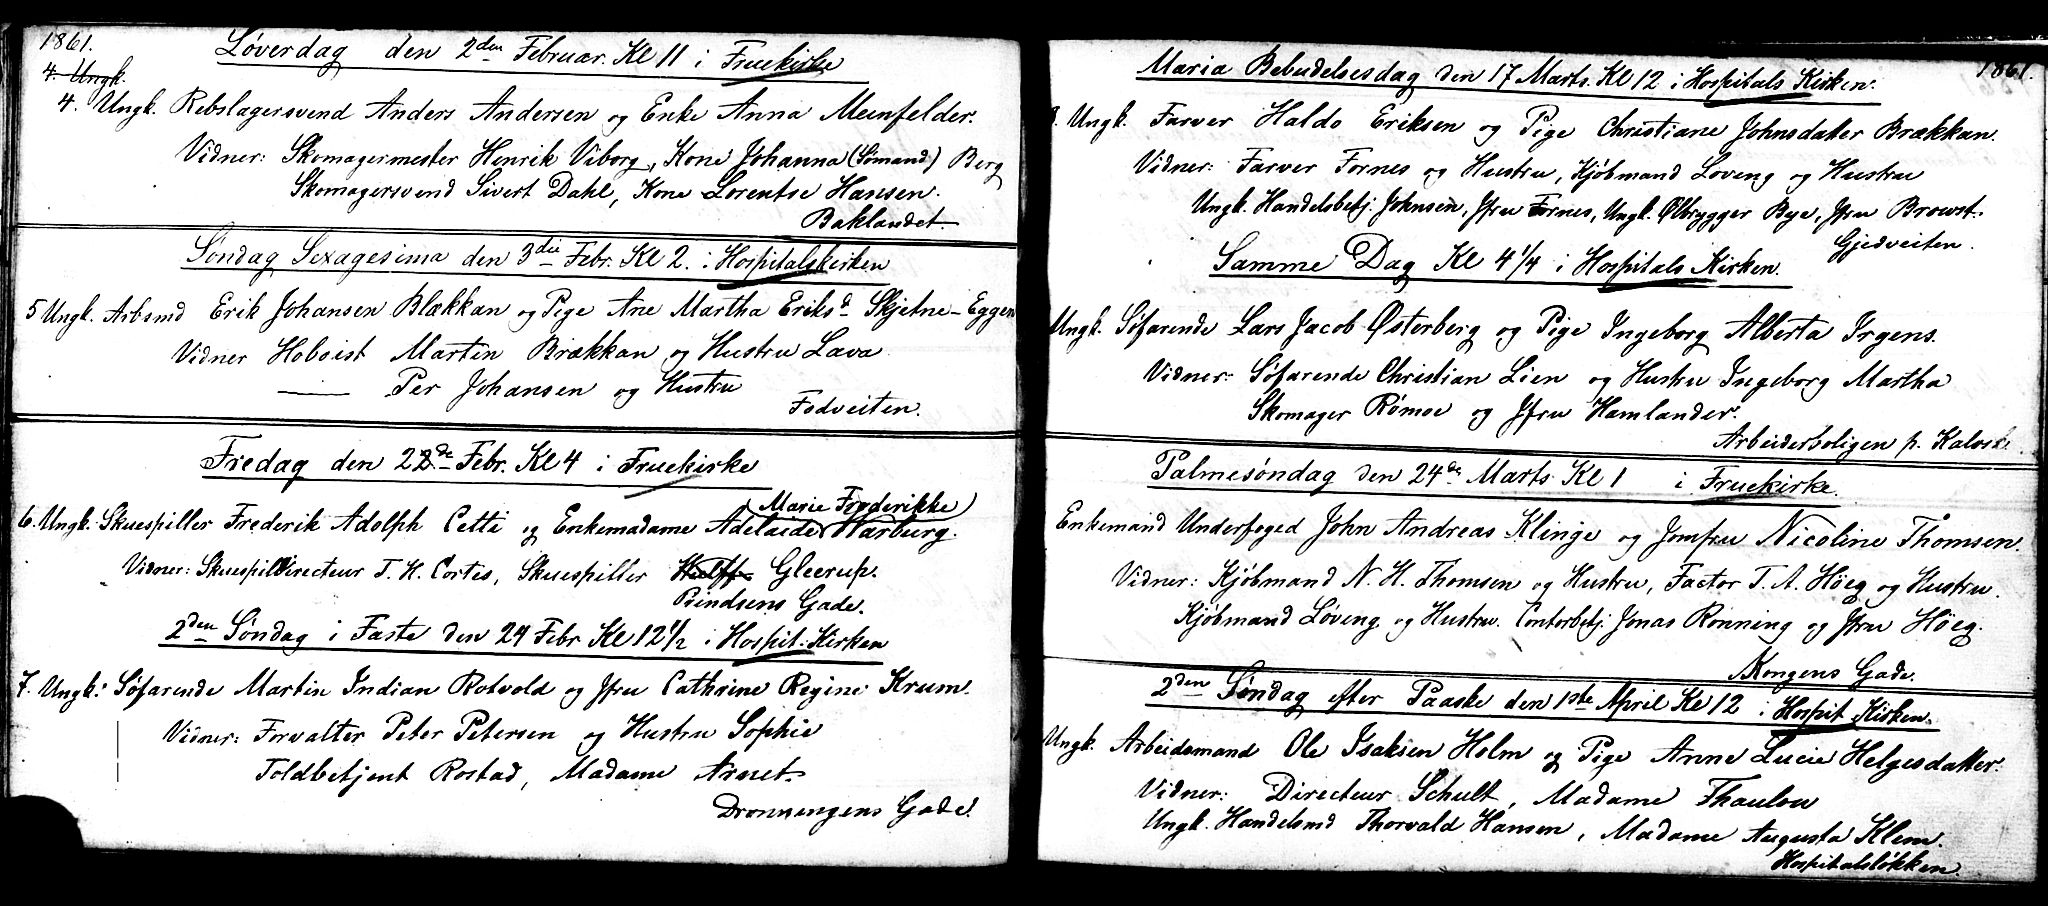 1861.
Løverdag den 2den Februar. Kl 11 i Fruekirke
4. Ungk.
4. Ungk. Rebslagersvend Anders Andersen og Enke Anna Meinfelder.
Vidner: Skomagermester Henrik Viborg, Kone Johanna (Sømand) Berg
Skomagersvend Sivert Dahl, Kone Lorentse Hansen.
Baklandet.
Søndag Sexagesima den 3die Febr. Kl 2. i Hospitalskirken
5 Ungk. Arbsmd Erik Johansen Blækkan og Pige Ane Martha Eriksd Skjetne-Eggen
Vidner Hoboist Martin Brækkan og Hustru Lava
— Per Johansen og Hustru
Fodveiten.
Fredag den 22de Febr. Kl 4 i Fruekirke
(Marie Frederikke)
6. Ungk: Skuespiller Frederik Adolph Cetti og Enkemadame Adelaide Warburg.
Vidner: Skuespildirecteur T. H. Cortes, Skuespiller Wulff Gleerup.
Prindsens Gade.
2den Søndag i Faste den 24 Febr Kl 12½ i Hospit. Kirken
7. Ungk: Søfarende Martin Indian Rotvold og Jfru Cathrine Regine Krum.
Vidner: Forvalter Peter Petersen og Hustru Sophie
Toldbetjent Rostad, Madame Arnet.
Dronningens Gade.
1861.
Maria Bebudelsesdag den 17 Marts. Kl 12 i Hospitals Kirken.
8. Ungk. Farver Haldo Eriksen og Pige Christiane Johnsdatter Brækkan.
Vidner: Farver Fornes og Hustru, Kjøbmand Loveng og Hustru
Ungk. Handelsbetj. Johnsen, Jfru Fornes, Ungk. Ølbrygger Bye, Jfru Browst.
Gjedveiten.
Samme Dag Kl 4¼ i Hospitals Kirken.
Ungk. Søfarende Lars Jacob Østerberg og Pige Ingeborg Alberta Irgens.
Vidner: Søfarende Christian Lien og Hustru Ingeborg Martha
Skomager Rømoe og Jfru Hamlander.
Arbeiderboligen p. Kalvsk.
Palmesøndag den 24de Marts Kl 1 i Fruekirke.
Enkemand Underfoged John Andreas Klinge og Jomfru Nicoline Thomsen.
Vidner: Kjøbmand N. H. Thomsen og Hustru, Factor T. A. Höeg og Hustru.
Kjøbmand Løveng og Hustru. Contorbetj. Jonas Rönning og Jfru Höeg.
Kongens Gade.
2den Søndag efter Paaske den 1ste April Kl 12 i Hospit. Kirken.
Ungk. Arbeidsmand Ole Isaksen Holm og Pige Anne Lucie Helgesdatter.
Vidner: Directeur Schult, Madame Thaulow
Ungk. Handelsmd Thorvald Hansen, Madame Augusta Klem.
Hospitalsløkken.